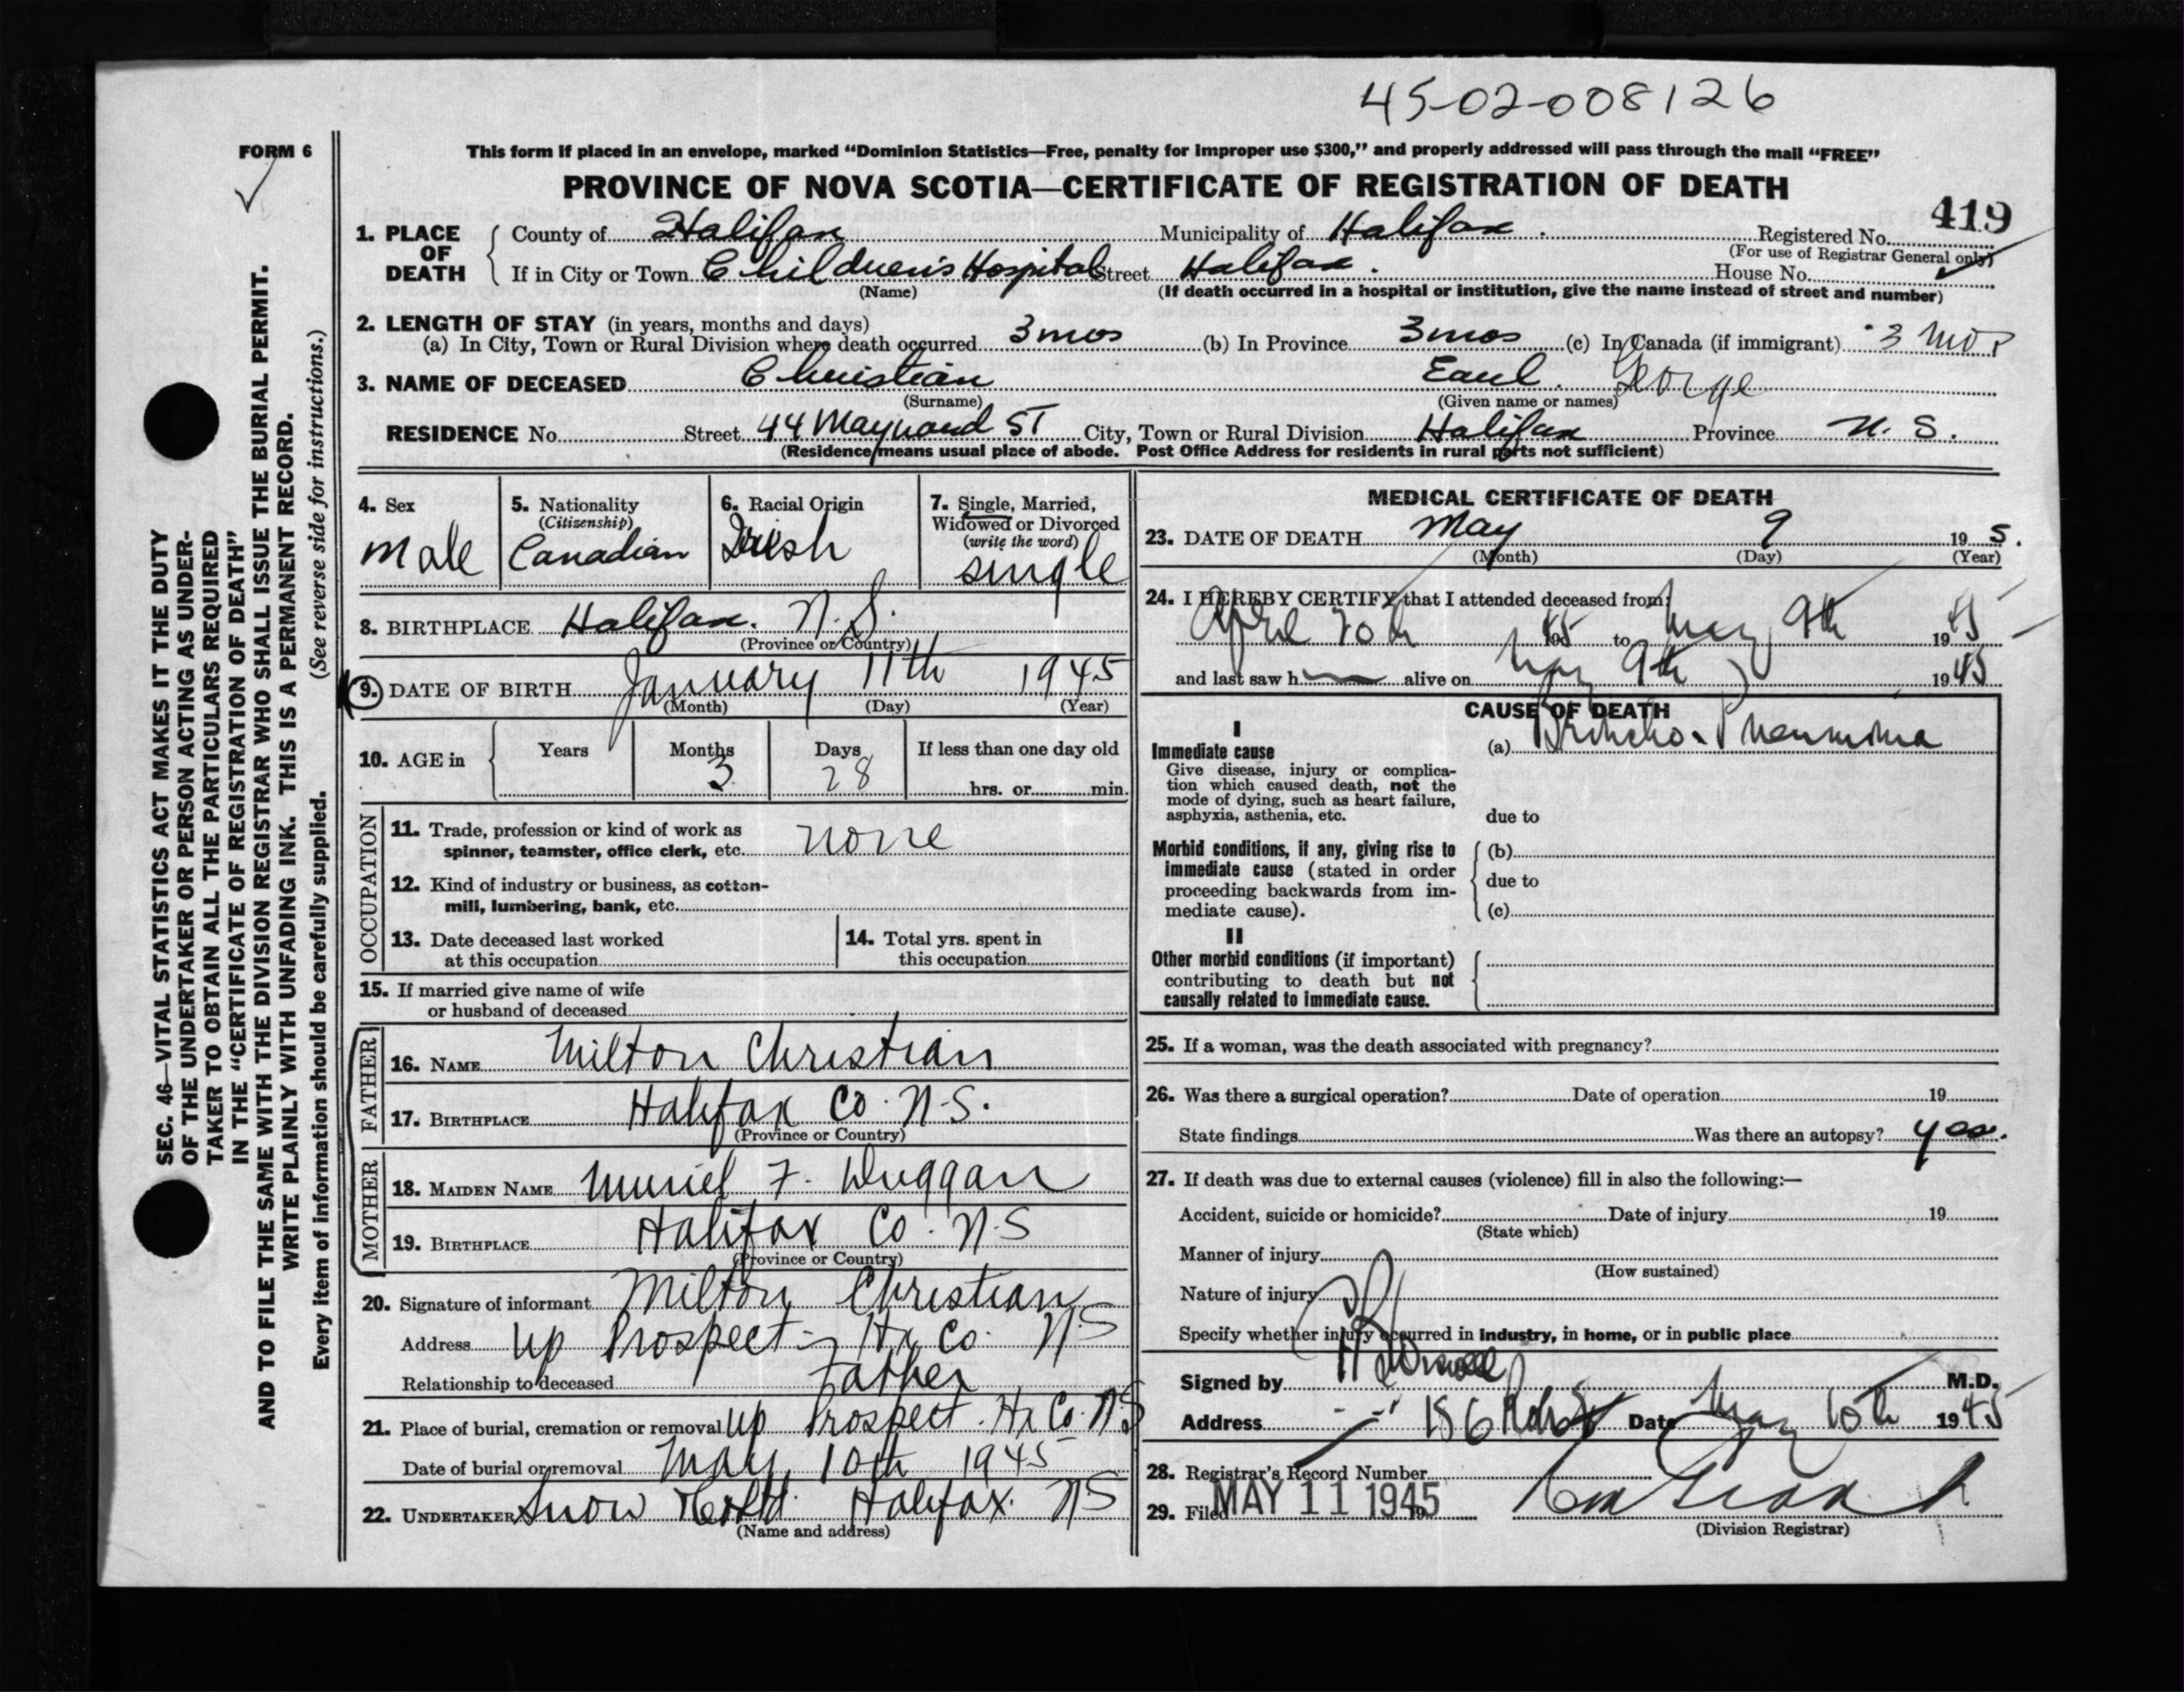 45-02-008126
FORM 6
This form if placed in an envelope, marked “Dominion Statistics—Free, penalty for improper use $300,” and properly addressed will pass through the mail “FREE”
PROVINCE OF NOVA SCOTIA—CERTIFICATE OF REGISTRATION OF DEATH
419
1. PLACE OF DEATH County of Halifax Municipality of Halifax. Registered No.
(For use of Registrar General only)
If in City or Town Children's Hospital Street Halifax. House No.
(Name) (If death occurred in a hospital or institution, give the name instead of street and number)
2. LENGTH OF STAY (in years, months and days)
(a) In City, Town or Rural Division where death occurred 3 mos (b) In Province 3 mos (c) In Canada (if immigrant) 3 mos
3. NAME OF DECEASED Christian Earl. George
(Surname) (Given name or names)
RESIDENCE No. Street 44 Maynard ST City, Town or Rural Division Halifax Province N. S.
(Residence means usual place of abode. Post Office Address for residents in rural parts not sufficient)
4. Sex
Male
5. Nationality
(Citizenship)
Canadian
6. Racial Origin
Irish
7. Single, Married,
Widowed or Divorced
(write the word)
single
8. BIRTHPLACE Halifax. N.S.
(Province or Country)
9. DATE OF BIRTH January 11th 1945
(Month) (Day) (Year)
10. AGE in Years Months Days If less than one day old
3 28 hrs. or min.
OCCUPATION
11. Trade, profession or kind of work as
spinner, teamster, office clerk, etc. none
12. Kind of industry or business, as cotton-
mill, lumbering, bank, etc.
13. Date deceased last worked
at this occupation
14. Total yrs. spent in
this occupation
15. If married give name of wife
or husband of deceased
FATHER
16. NAME Milton Christian
17. BIRTHPLACE Halifax Co. N.S.
(Province or Country)
MOTHER
18. MAIDEN NAME Muriel F. Duggan
19. BIRTHPLACE Halifax Co. N.S
(Province or Country)
20. Signature of informant Milton Christian
Address Up Prospect - Hx Co. NS
Relationship to deceased Father
21. Place of burial, cremation or removal Up Prospect. Hx Co. NS
Date of burial or removal May 10th 1945
22. UNDERTAKER Snow Halifax. NS
(Name and address)
MEDICAL CERTIFICATE OF DEATH
23. DATE OF DEATH May 9 19 5.
(Month) (Day) (Year)
24. I HEREBY CERTIFY that I attended deceased from:
April 20th 1945 to May 9th 1945
and last saw h alive on May 9th 1945
CAUSE OF DEATH
I
Immediate cause
Give disease, injury or complica-
tion which caused death, not the
mode of dying, such as heart failure,
asphyxia, asthenia, etc.
(a) Broncho-Pneumonia
due to
Morbid conditions, if any, giving rise to
immediate cause (stated in order
proceeding backwards from im-
mediate cause).
(b)
due to
(c)
II
Other morbid conditions (if important)
contributing to death but not
causally related to immediate cause.
25. If a woman, was the death associated with pregnancy?
26. Was there a surgical operation? Date of operation 19
State findings Was there an autopsy? yes.
27. If death was due to external causes (violence) fill in also the following:—
Accident, suicide or homicide? Date of injury 19
(State which)
Manner of injury
(How sustained)
Nature of injury
Specify whether injury occurred in industry, in home, or in public place
Signed by M.D.
Address 186 Date May 10th 1945
28. Registrar's Record Number
29. Filed MAY 11 1945 19
(Division Registrar)
SEC. 46—VITAL STATISTICS ACT MAKES IT THE DUTY
OF THE UNDERTAKER OR PERSON ACTING AS UNDER-
TAKER TO OBTAIN ALL THE PARTICULARS REQUIRED
IN THE “CERTIFICATE OF REGISTRATION OF DEATH”
AND TO FILE THE SAME WITH THE DIVISION REGISTRAR WHO SHALL ISSUE THE BURIAL PERMIT.
WRITE PLAINLY WITH UNFADING INK. THIS IS A PERMANENT RECORD.
Every item of information should be carefully supplied. (See reverse side for instructions.)